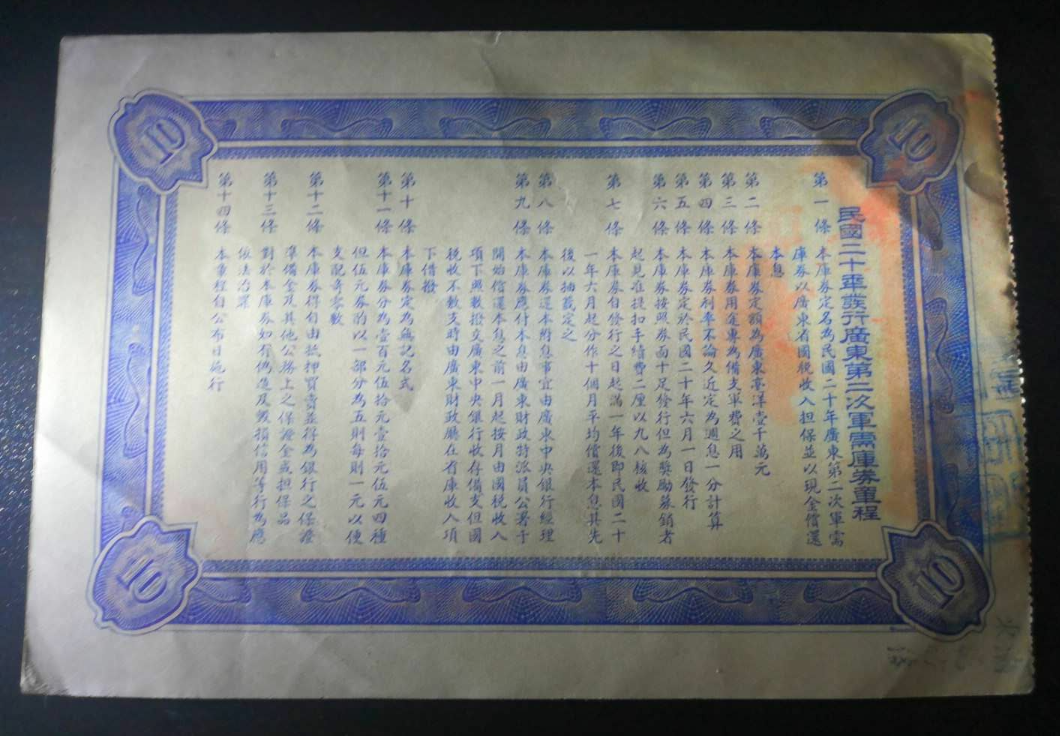 民國二十年發行廣東第二次軍需庫券章程
第一條 本庫券定名為民國二十年廣東第二次軍需
庫券以廣東省國稅收入担保並以現金償還
本息
第二條 本庫券定額為廣東毫洋壹千萬元
第三條 本庫券用途專為備支軍費之用
第四條 本庫券利率不論久近定為週息一分計算
第五條 本庫券定於民國二十年六月一日發行
第六條 本庫券按照券面十足發行但為奬勵募銷者
起見准提扣手續費二厘以九八核收
第七條 本庫券自發行之日起滿一年後即民國二十
一年六月起分作十個月平均償還本息其先
後以抽籤定之
第八條 本庫券還本附息事宜由廣東中央銀行經理
第九條 本庫券應付本息由廣東財政特派員公署于
開始償還本息之前一月起按月由國稅收入
項下照數撥交廣東中央銀行收存備支但國
稅收不敷支時由廣東財政廳在省庫收入項
下借撥
第十條 本庫券定為無記名式
第十一條 本庫券分為壹百元伍拾元壹拾元伍元四種
但伍元券的以一部分為五則每則一元以便
支配奇零數
第十二條 本庫券得自由抵押買賣並得為銀行之保證
準備金及其他公務上之保證金或担保品
第十三條 對於本庫券如有偽造及毀損信用等行為應
依法治罪
第十四條 本章程自公布日施行
10
10
10
10